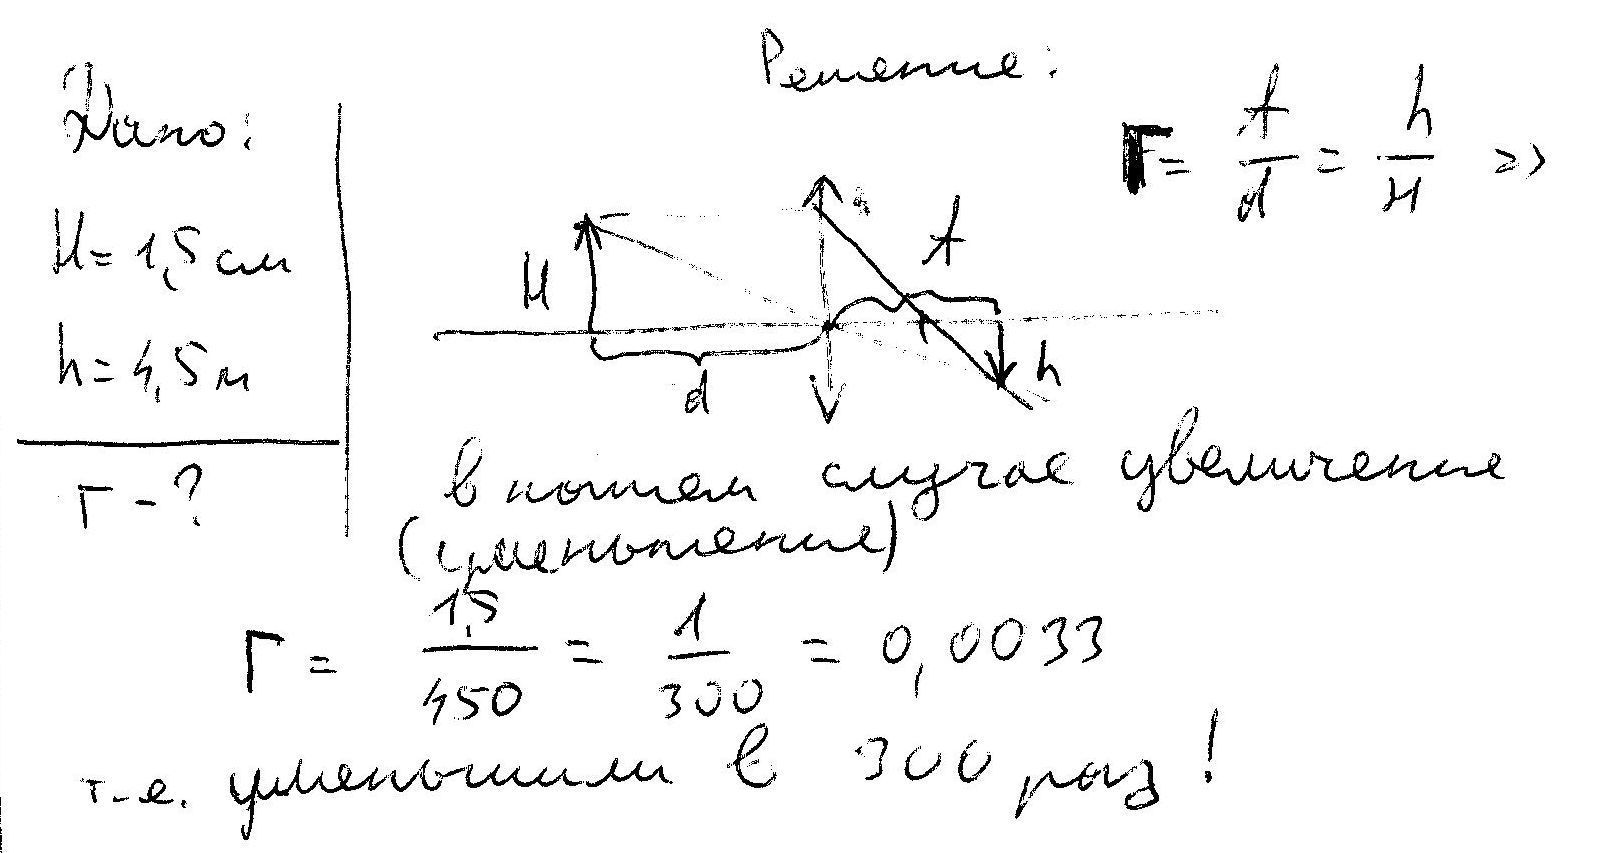 Решение:
Дано:
H = 1,5 см
h = 4,5 м
Г - ?
Г = f/d = h/H =>
H
d
f
h
в нашем случае увеличение
(уменьшение)
Г = 1,5/450 = 1/300 = 0,0033
т.е. уменьшили в 300 раз!